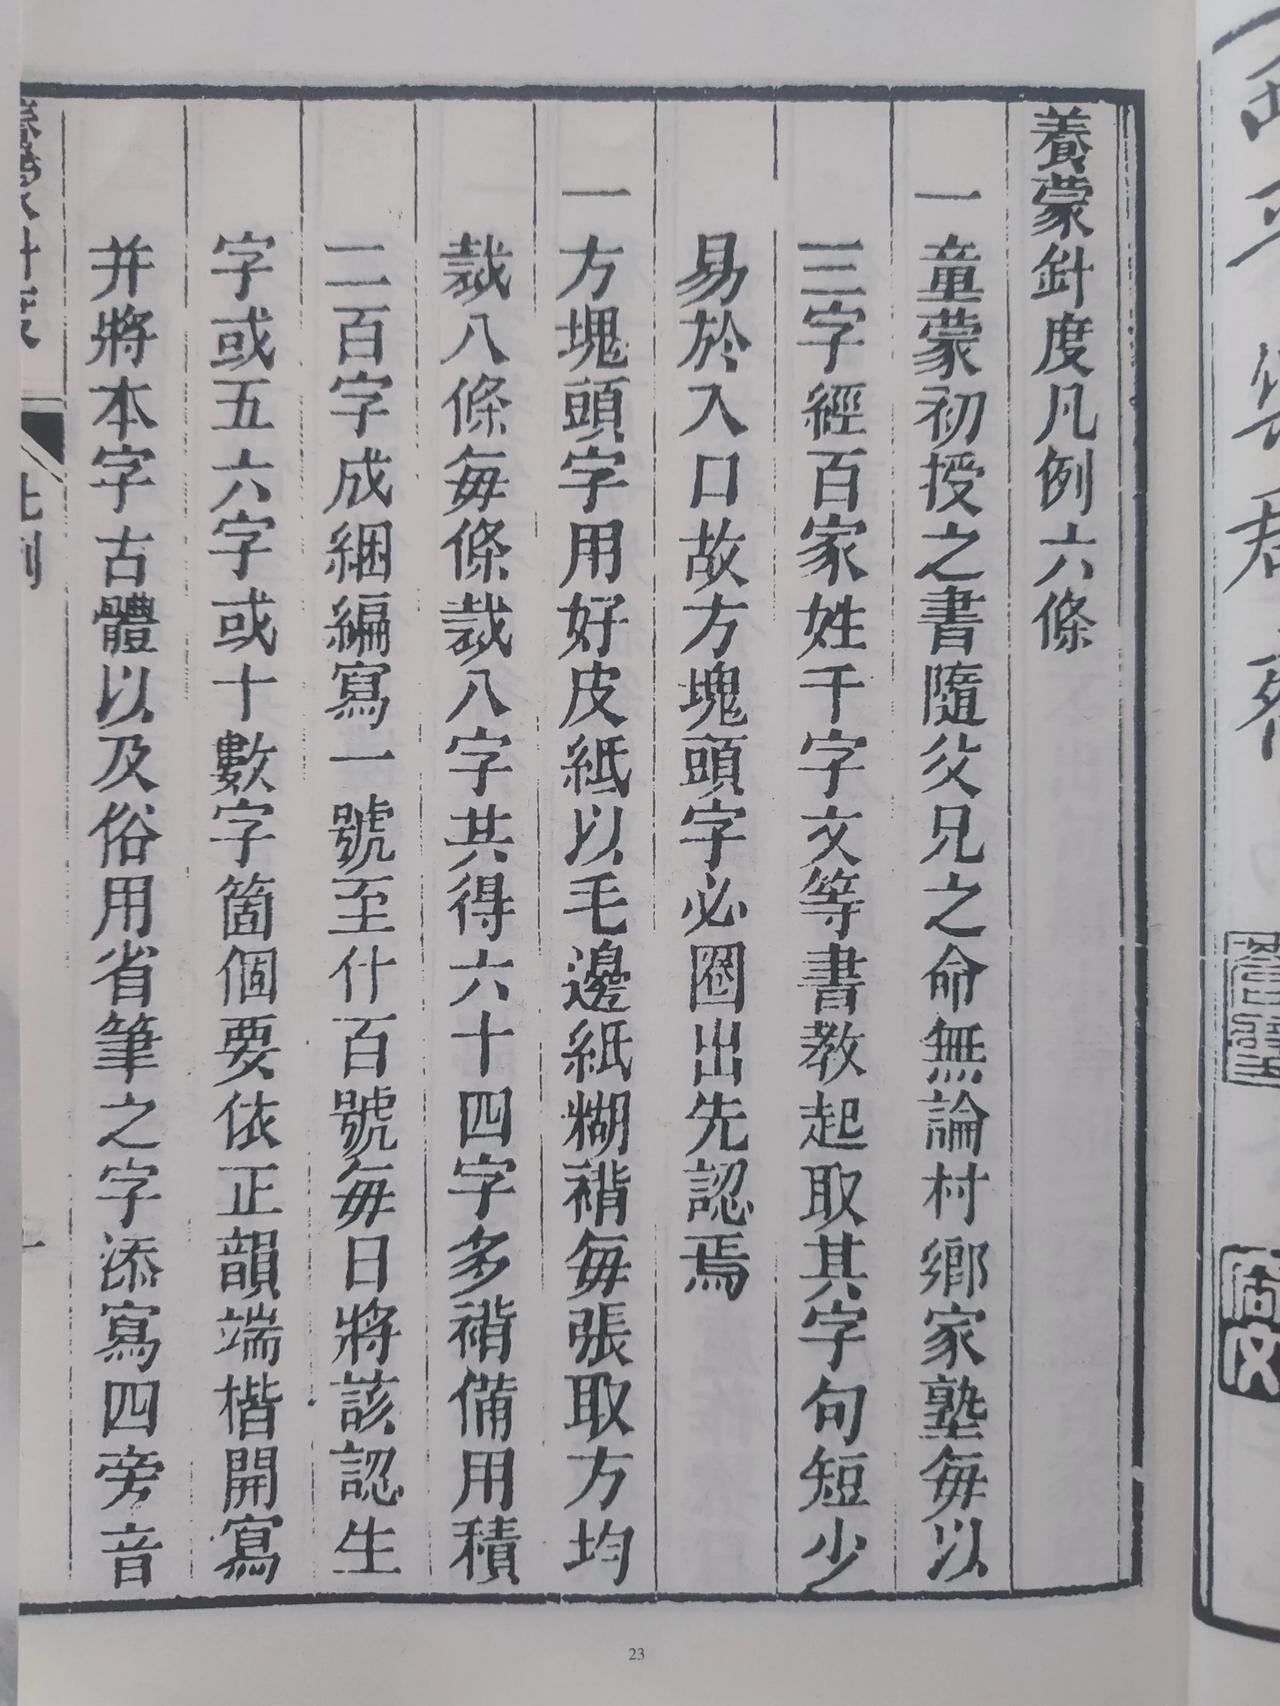 養蒙針度凡例六條
一童蒙初授之書隨父兄之命無論村鄉家塾每以
三字經百家姓千字文等書教起取其字句短少
易於入口故方塊頭字必圈出先認焉
一方塊頭字用好皮紙以毛邊紙糊褙每張取方均
裁八條每條裁八字共得六十四字多褙備用積
二百字成綑編寫一號至什百號每日將該認生
字或五六字或十數字箇個要依正韻端楷開寫
并將本字古體以及俗用省筆之字添寫四旁音
23